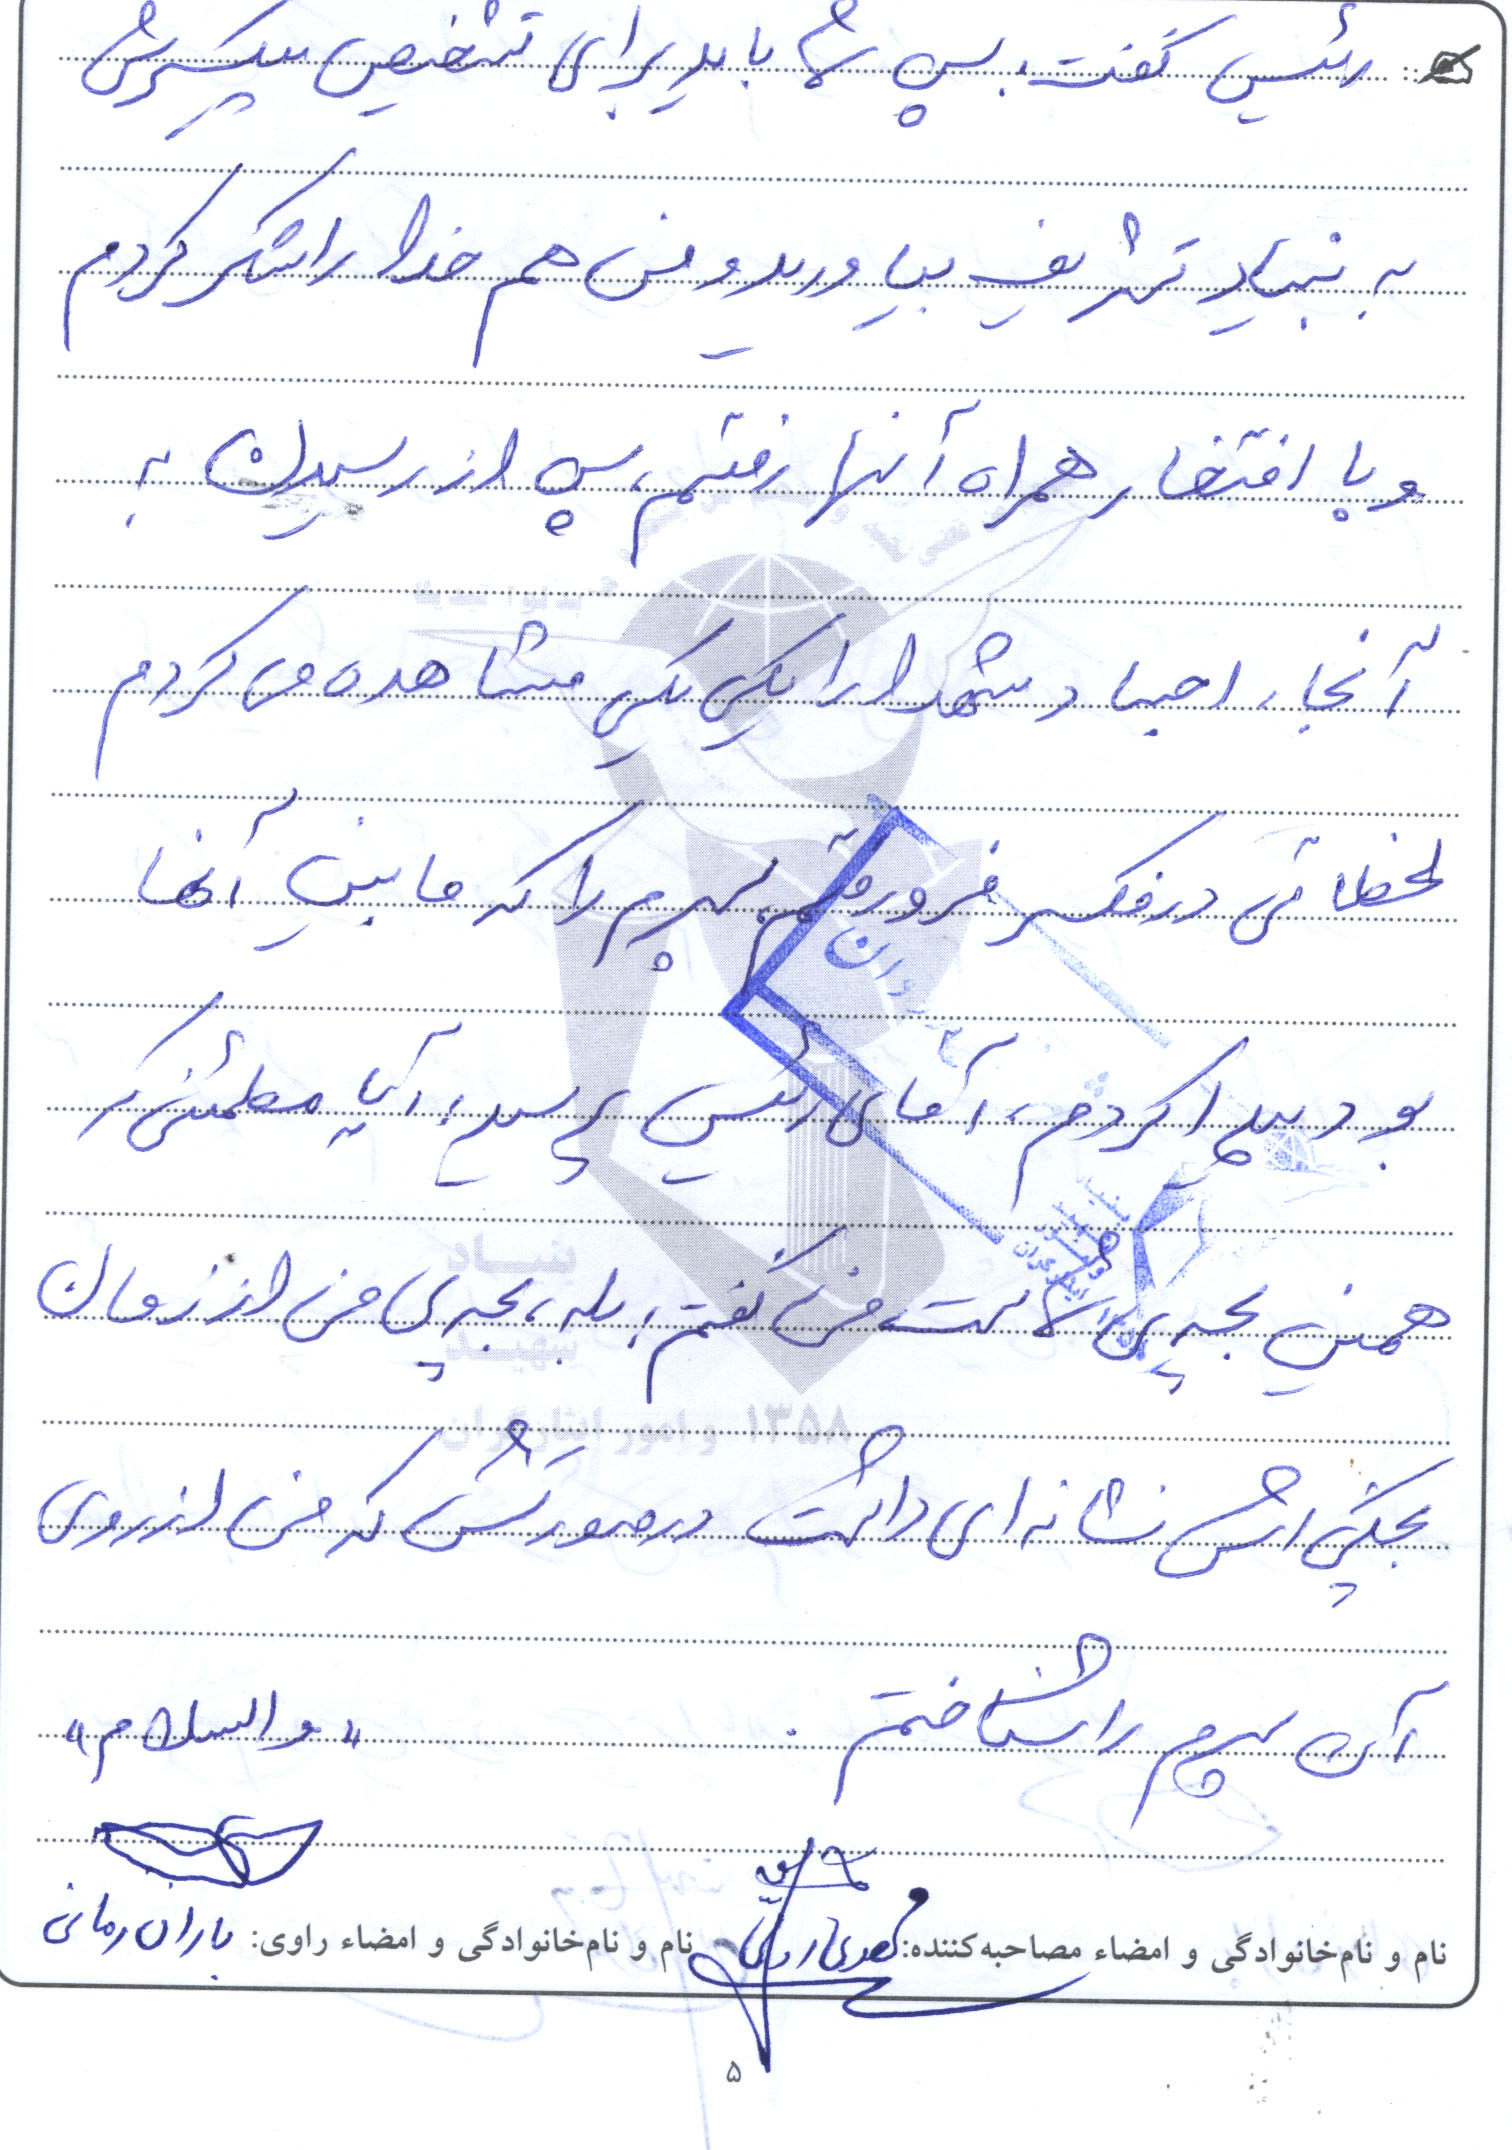 رئیس گفت: پس شما باید برای تشخیص پیکرش
به بنیاد تشریف بیاورید و من هم خدا را شکر کردم
و با افتخار همراه آنها رفتم، پس از رسیدن به
آنجا، اجساد شهدا را یکی یکی مشاهده می کردم
لحظاتی در فکر فرو رفتم، پسرم را که مابین آنها
بود پیدا کردم، آقای رئیس پرسید: آیا مطمئنی که
همین بچه ی شماست، من گفتم: بله، بچه ی من از زمان
بچگی اش نشانه ای داشت در صورتش که من از روی
آن پسرم را شناختم.
«والسلام»
نام و نام‌خانوادگی و امضاء مصاحبه‌کننده:
نام و نام‌خانوادگی و امضاء راوی: باران رمانی
بنیاد
شهید
و امور ایثارگران ۱۳۵۸
۵